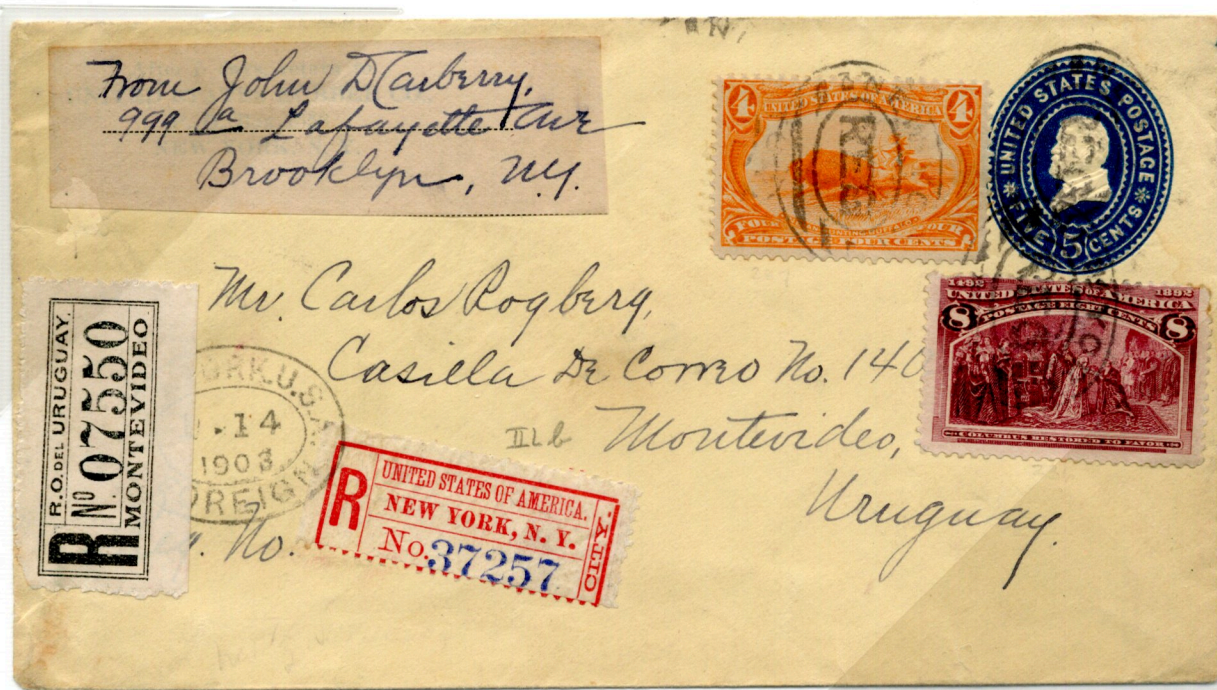 From John D Carberry,
999 a Lafayette Ave
Brooklyn, N.Y.
4 4
UNITED STATES OF AMERICA
FOUR FOUR
POSTAGE FOUR CENTS
UNITED STATES POSTAGE
FIVE 5 CENTS
1492 1892
UNITED STATES OF AMERICA
POSTAGE EIGHT CENTS
8 8
COLUMBUS RESTORED TO FAVOR
Mr. Carlos Rogberg,
Casilla De Correo No. 140
Montevideo,
Uruguay.
R
R.O. DEL URUGUAY.
Nº 07550
MONTEVIDEO
YORK, U.S.A.
14
1903
FOREIGN
No.
R
UNITED STATES OF AMERICA.
NEW YORK, N. Y.
No. 37257
CITY.